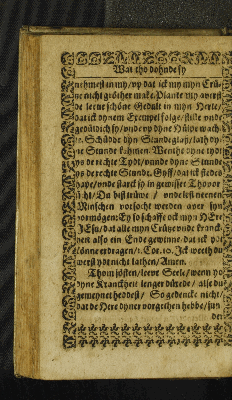 Wat tho dohnde sy
nehmest in my / up dat ick my myn Crü-
tze nicht gröther make. Plante my averst
de leeve schöne Gedult in myn Herte /
dat ick dynem Exempel folge / stille unde
gedüldich sy / unde up dyne Hülpe wach-
te.
ne Stunde kahmen. Wente dyne tydt
ys de rechte Tydt / unnde dyne Stunde
ys de rechte Stundt. Giff / dat ick stedes
hape / unde starck sy in gewisser Thovor
sicht / Du bist trüwe / unde lest neenen
Minschen vorsocht werden aver syn
vormögen: Ey so schaffe ock myn HEre
JEsu / dat alle myn Crütze unde kranck-
heit also ein Ende gewinne / dat ick ydt
könne erdragen / 1. Cor. 10. Ick weeth du
werst ydt nicht lathen / Amen.
Thom sösten / leeve Seele / wenn yo
dyne Kranckheit lenger dürede / alse du
gemeynet heddest / So gedencke nicht /
dat de HEre dyner vorgethen hebbe / sun
der